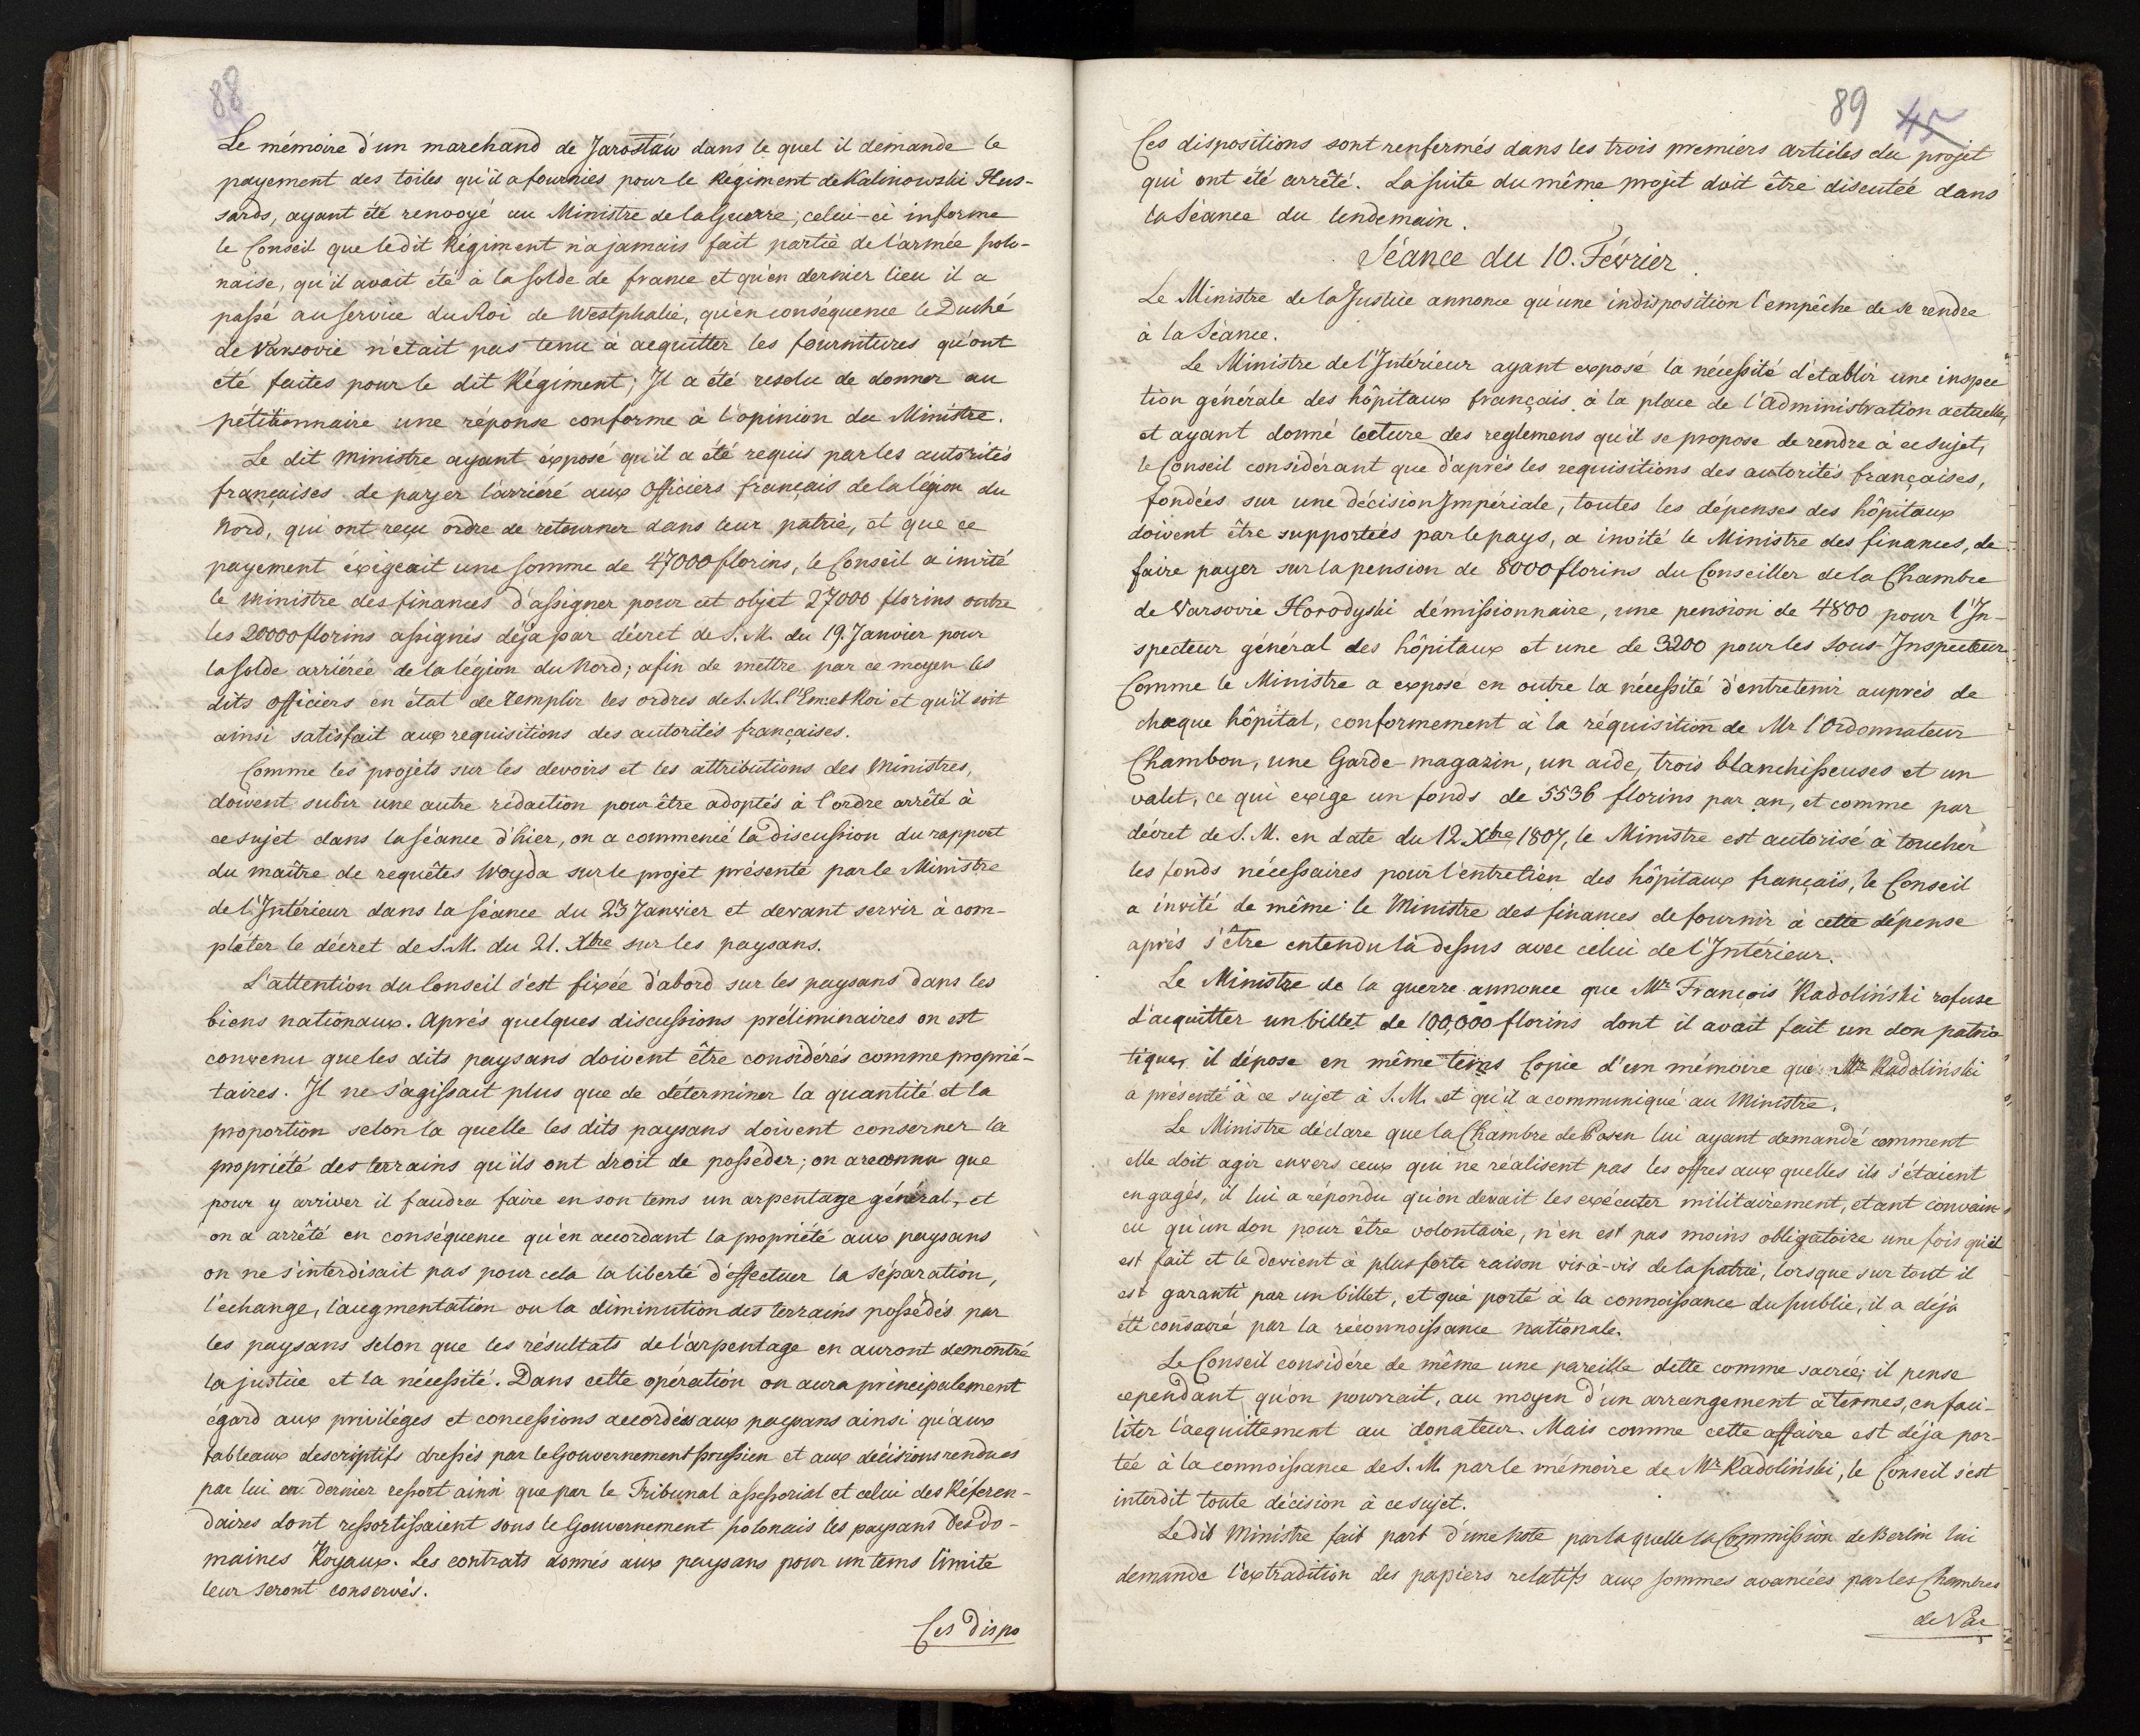 88
Le mémoire d'un marchand de Jarosław dans le quel il demande le
payement des toiles qu'il a fournies pour le Régiment de Kalinowski Hus-
sards, ayant été renvoyé au Ministre de la Guerre, celui-ci informe
le Conseil que le dit Régiment n'a jamais fait partie de l'armée polo-
naise, qu'il avait été à la solde de france et qu'en dernier lieu il a
passé au service du Roi de Westphalie, qu'en conséquence le Duché
de Varsovie n'était pas tenu à acquitter les fournitures qu'ont
été faites pour le dit Régiment; Il a été resolu de donner au
petitionnaire une réponse conforme à l'opinion du Ministre.
Le dit Ministre ayant éxposé qu'il a été requis par les autorités
françaises de payer l'arriéré aux Officiers français de la légion du
Nord, qui ont reçu ordre de retourner dans leur patrie, et que ce
payement éxigeait une somme de 47000 florins, le Conseil a invité
le Ministre des finances d'assigner pour cet objet 27000 florins outre
les 20000 florins assignés déja par décret de S. M. du 19. Janvier pour
la solde arriérée de la légion du Nord; afin de mettre par ce moyen les
dits Officiers en état de remplir les ordres de S. M. l'Em et Roi et qu'il soit
ainsi satisfait aux requisitions des autorités françaises.
Comme les projets sur les devoirs et les attributions des Ministres,
doivent subir une autre rédaction pour être adoptés à l'ordre arrêté à
ce sujet dans la séance d'hier, on a commencé la discussion du rapport
du maître de requêtes Woyda sur le projet présenté par le Ministre
de l'Intérieur dans la séance du 23 Janvier et devant servir à com-
pléter le décret de S. M. du 21. Xbre sur les paysans.
L'attention du Conseil s'est fixée d'abord sur les paysans dans les
biens nationaux. Après quelques discussions préliminaires on est
convenu que les dits paysans doivent être considérés comme proprié-
taires. Il ne s'agissait plus que de déterminer la quantité et la
proportion selon la quelle les dits paysans doivent conserver la
propriété des terrains qu'ils ont droit de posséder; on a reconnu que
pour y arriver il faudra faire en son tems un arpentage général, et
on a arrêté en conséquence qu'en accordant la propriété aux paysans
on ne s'interdisait pas pour cela la liberté d'effectuer la séparation,
l'echange, l'augmentation ou la diminution des terrains possédés par
les paysans selon que les résultats de l'arpentage en auront demontré
la justice et la nécessité. Dans cette opération on aura principalement
égard aux priviléges et concessions accordés aux paysans ainsi qu'aux
tableaux descriptifs dressés par le Gouvernement prussien et aux décisions rendues
par lui en dernier ressort ainsi que par le Tribunal assessorial et celui des Référen-
daires dont ressortissaient sous le Gouvernement polonais les paysans des do-
maines Royaux. Les contrats donnés aux paysans pour un tems limité
leur seront conservés.
Ces dispo
89 45
Ces dispositions sont renfermés dans les trois premiers articles du projet
qui ont été arrêté. La suite du même projet doit être discutée dans
la Séance du lendemain.
Séance du 10. Février.
Le Ministre de la Justice annonce qu'une indisposition l'empêche de se rendre
à la Séance.
Le Ministre de l'Intérieur ayant exposé la nécessité d'établir une inspec
tion générale des hôpitaux français à la place de l'Administration actuelle,
et ayant donné lecture des reglemens qu'il se propose de rendre à ce sujet,
le Conseil considérant que d'aprés les requisitions des autorités françaises,
fondées sur une décision Impériale, toutes les dépenses des hôpitaux
doivent être supportées par le pays, a invité le Ministre des finances, de
faire payer sur la pension de 8000 florins du Conseiller de la Chambre
de Varsovie Horodyski démissionnaire, une pension de 4800 pour l'In-
specteur général des hôpitaux et une de 3200 pour les Sous-Inspecteur
Comme le Ministre a exposé en outre la nécessité d'entretenir auprés de
chaque hôpital, conformement à la réquisition de Mr l'Ordonnateur
Chambon, une Garde-magazin, un aide, trois blanchisseuses et un
valet, ce qui exige un fonds de 5536 florins par an, et comme par
décret de S. M. en date du 12. Xbre 1807, le Ministre est autorisé à toucher
les fonds nécessaires pour l'entretien des hôpitaux français, le Conseil
a invité de même le Ministre des finances de fournir à cette dépense
aprés s'être entendu là dessus avec celui de l'Intérieur.
Le Ministre de la guerre annonce que Mr François Radoliński refuse
d'acquitter un billet de 100,000 florins dont il avait fait un don patrio
tique, il dépose en même tems Copie d'un mémoire que Mr Radoliński
a présenté à ce sujet à S. M. et qu'il a communiqué au Ministre.
Le Ministre déclare que la Chambre de Posen lui ayant demandé comment
elle doit agir envers ceux qui ne réalisent pas les offres aux quelles ils s'étaient
engagés, il lui a répondu qu'on devait les exécuter militairement, etant convain-
cu qu'un don pour être volontaire, n'en est pas moins obligatoire une fois qu'il
est fait et le devient à plus forte raison vis-à-vis de la patrie, lorsque sur tout il
est garanti par un billet, et que porté à la connoissance du public, il a déjà
été consacré par la réconnoissance nationale.
Le Conseil considére de même une pareille dette comme sacrée; il pense
cependant qu'on pourrait, au moyen d'un arrangement à termes, en faci-
liter l'acquittement au donateur. Mais comme cette affaire est déja por-
tée à la connoissance de S. M. par le mémoire de Mr Radoliński, le Conseil s'est
interdit toute décision à ce sujet.
Le dit Ministre fait part d'une Note par la quelle la Commission de Berlin lui
demande l'extradition des papiers relatifs aux sommes avancées par les Chambres
de Var